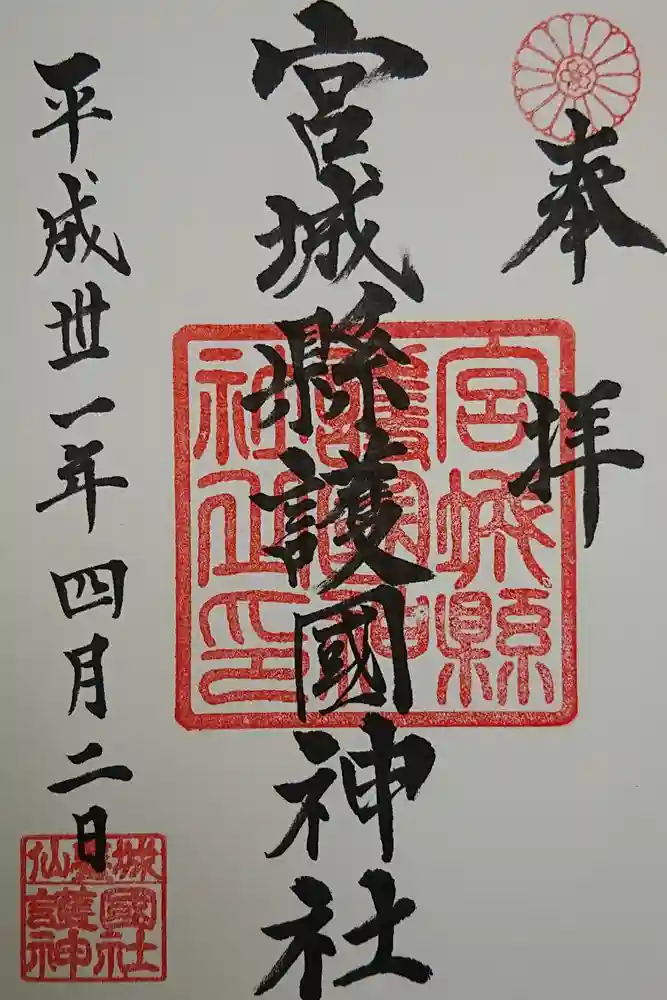 奉拝
宮城縣護國神社
平成卅一年四月二日
宮城縣
護國神
社之印
城國社
護神